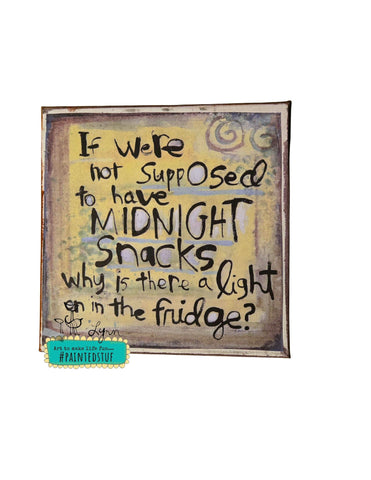 If we're
not supposed
to have
MIDNIGHT
snacks
why is there a light
on in the fridge?
Lynn
Art to make life fun...
#PAINTEDSTUF